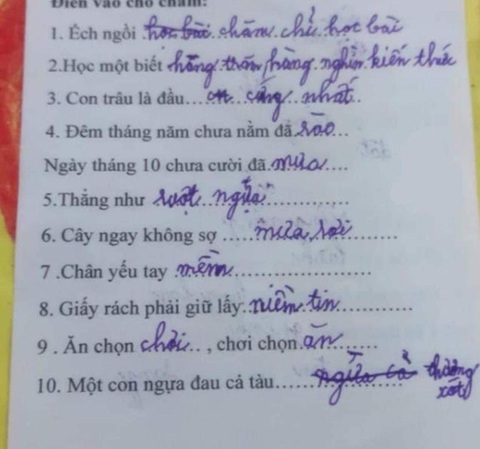 Điền vào chỗ chấm:
1. Ếch ngồi học bài chăm chỉ học bài
2.Học một biết hằng trăm hàng nghìn kiến thức
3. Con trâu là đầu... cứng nhất.
4. Đêm tháng năm chưa nằm đã ráo...
Ngày tháng 10 chưa cười đã mưa....
5.Thẳng như ruột ngựa...............
6. Cây ngay không sợ .....mưa rơi
7 .Chân yếu tay mềm.......................
8. Giấy rách phải giữ lấy niềm tin............
9 . Ăn chọn chơi... , chơi chọn ăn.......
10. Một con ngựa đau cả tàu......ngựa cả thương xót